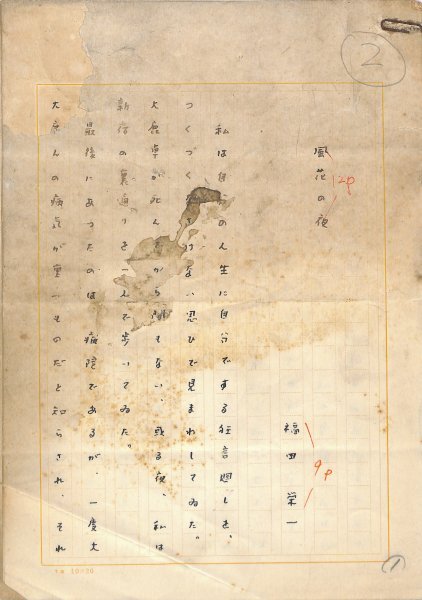 2
風花の夜
12P
福田栄一
9P
私は自の人生に自分でする狂言廻しを、
つくづくけない思ひで見まわしてゐた。
死んから間もない、或る夜、私は
新宿の裏通りを一人で歩いてゐた。
最後にあったのは病院であるが、一度
んの病気が重いものだと知らされ、それ
10×20
1